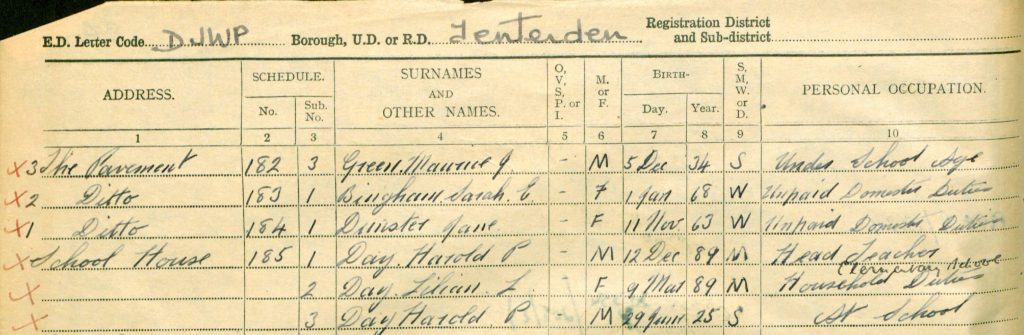 E.D. Letter Code DJWP Borough, U.D. or R.D. Tenterden Registration District and Sub-district
ADDRESS. SCHEDULE. No. Sub. No. SURNAMES AND OTHER NAMES. O, V, S, P. or I. M. or F. BIRTH- Day. Year. S, M, W, or D. PERSONAL OCCUPATION.
1 2 3 4 5 6 7 8 9 10
X 3 The Pavement 182 3 Green Maurice J. - M 5 Dec 34 S Under School Age
X 2 Ditto 183 1 Bingham Sarah. E - F 1 Jan 68 W Unpaid Domestic Duties
X 1 Ditto 184 1 Jane - F 11 Nov 63 W Unpaid Domestic Duties
X School House 185 1 Day. Harold P - M 12 Dec 89 M Head Teacher
Elementary School
X 2 Day Lilian. L. F 9 Mar 89 M Household Duties
X 3 Day Harold P M 29 June 25 S At School